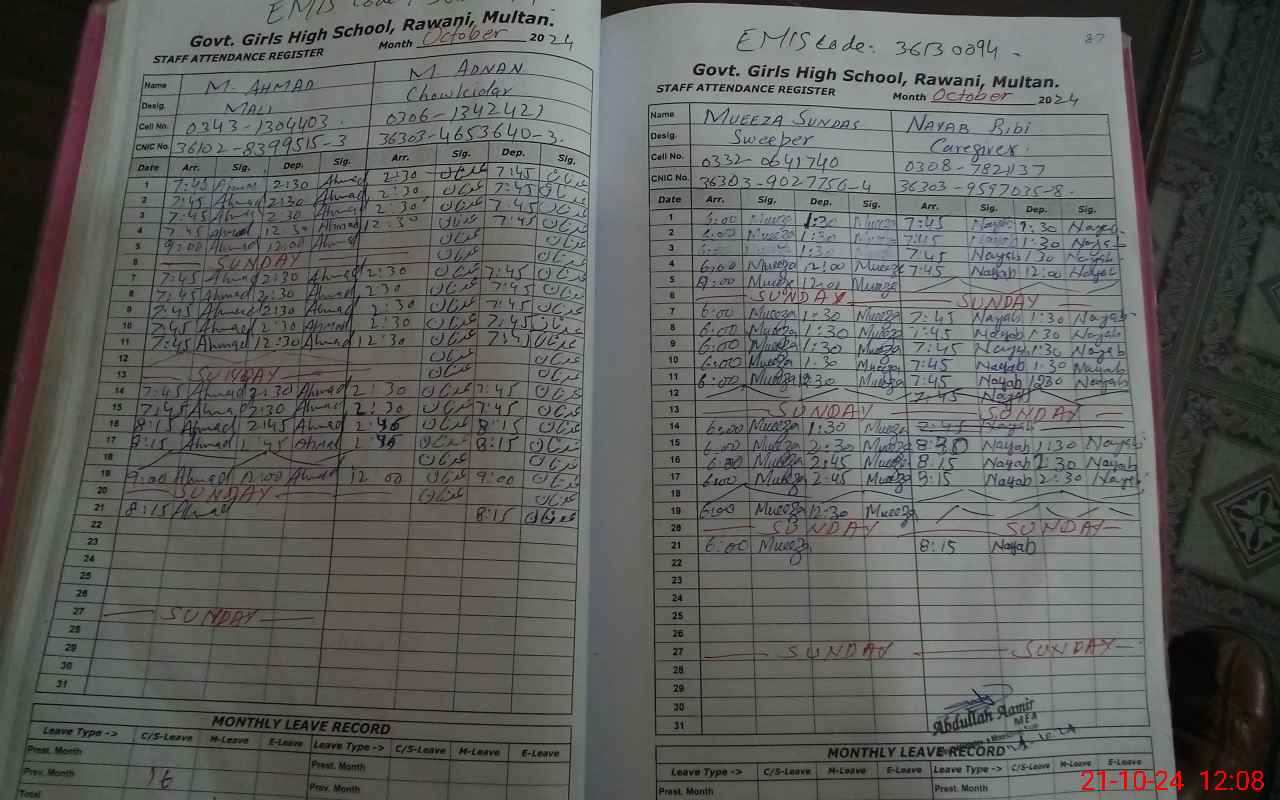 EMIS Code
Govt. Girls High School, Rawani, Multan.
STAFF ATTENDANCE REGISTER Month October 2024
Name M. AHMAD M. ADNAN
Desig. MALI Chowkidar
Cell No. 0343-1304403. 0306-1342421
CNIC No. 36102-8399515-3 36303-4653640-3.
Date Arr. Sig. Dep. Sig. Arr. Sig. Dep. Sig.
1 7:45 Ahmad 2:30 Ahmad 2:30 عدنان 7:45 عدنان
2 7:45 Ahmad 2:30 Ahmad 2:30 عدنان 7:45 عدنان
3 7:45 Ahmad 2:30 Ahmad 2:30 عدنان 7:45 عدنان
4 7:45 Ahmad 12:30 Ahmad 12:30 عدنان 7:45 عدنان
5 9:00 Ahmad 12:00 Ahmad عدنان عدنان
6 SUNDAY عدنان عدنان
7 7:45 Ahmad 2:30 Ahmad 2:30 عدنان 7:45 عدنان
8 7:45 Ahmad 2:30 Ahmad 2:30 عدنان 7:45 عدنان
9 7:45 Ahmad 2:30 Ahmad 2:30 عدنان 7:45 عدنان
10 7:45 Ahmad 2:30 Ahmad 2:30 عدنان 7:45 عدنان
11 7:45 Ahmad 12:30 Ahmad 12:30 عدنان 7:45 عدنان
12 عدنان عدنان
13 SUNDAY عدنان عدنان
14 7:45 Ahmad 2:30 Ahmad 2:30 عدنان 7:45 عدنان
15 7:45 Ahmad 2:30 Ahmad 2:30 عدنان 7:45 عدنان
16 8:15 Ahmad 2:45 Ahmad عدنان 8:15 عدنان
17 8:15 Ahmad Ahmad عدنان 8:15 عدنان
18 عدنان عدنان
19 9:00 Ahmad 12:00 Ahmad 12:00 عدنان 9:00 عدنان
20 SUNDAY عدنان عدنان
21 8:15 Ahmad 8:15 عدنان
22
23
24
25
26
27 SUNDAY
28
29
30
31
MONTHLY LEAVE RECORD
Leave Type -> C/S-Leave M-Leave E-Leave Leave Type -> C/S-Leave M-Leave E-Leave
Prest. Month Prest. Month
Prev. Month 16 Prav. Month
Total
EMIS Code. 36130094.
87
Govt. Girls High School, Rawani, Multan.
STAFF ATTENDANCE REGISTER Month October 2024
Name MUEEZA SUNDAS NAYAB Bibi
Desig. Sweeper Caregiver.
Cell No. 0332-0641740 0308-7821137
CNIC No. 36303-9027756-4 36303-9597035-8.
Date Arr. Sig. Dep. Sig. Arr. Sig. Dep. Sig.
1 6:00 Mueeza 1:30 Mueeza 7:45 Nayab 1:30 Nayab
2 6:00 Mueeza 1:30 Mueeza 7:45 Nayab 1:30 Nayab
3 6:00 Mueeza 1:30 Mueeza 7:45 Nayab 1:30 Nayab
4 6:00 Mueeza 12:00 Mueeza 7:45 Nayab 12:00 Nayab
5 8:00 Mueeza 12:00 Mueeza
6 SUNDAY SUNDAY
7 6:00 Mueeza 1:30 Mueeza 7:45 Nayab 1:30 Nayab
8 6:00 Mueeza 1:30 Mueeza 7:45 Nayab 1:30 Nayab
9 6:00 Mueeza 1:30 Mueeza 7:45 Nayab 1:30 Nayab
10 6:00 Mueeza 1:30 Mueeza 7:45 Nayab 1:30 Nayab
11 6:00 Mueeza 12:30 Mueeza 7:45 Nayab Nayab
12 7:45 Nayab
13 SUNDAY SUNDAY
14 6:00 Mueeza 1:30 Mueeza 7:45 Nayab
15 6:00 Mueeza 2:30 Mueeza Nayab 1:30 Nayab
16 6:00 Mueeza 2:45 Mueeza 8:15 Nayab 2:30 Nayab
17 6:00 Mueeza 2:45 Mueeza 8:15 Nayab 2:30 Nayab
18
19 6:00 Mueeza 12:30 Mueeza
20 SUNDAY SUNDAY
21 6:00 Mueeza 8:15 Nayab
22
23
24
25
26
27 SUNDAY SUNDAY
28
29
30
31
Abdullah Aamir
MEA
MONTHLY LEAVE RECORD
Leave Type -> C/S-Leave M-Leave E-Leave Leave Type -> C/S-Leave M-Leave E-Leave
Prest. Month Prest. Month
21-10-24 12:08